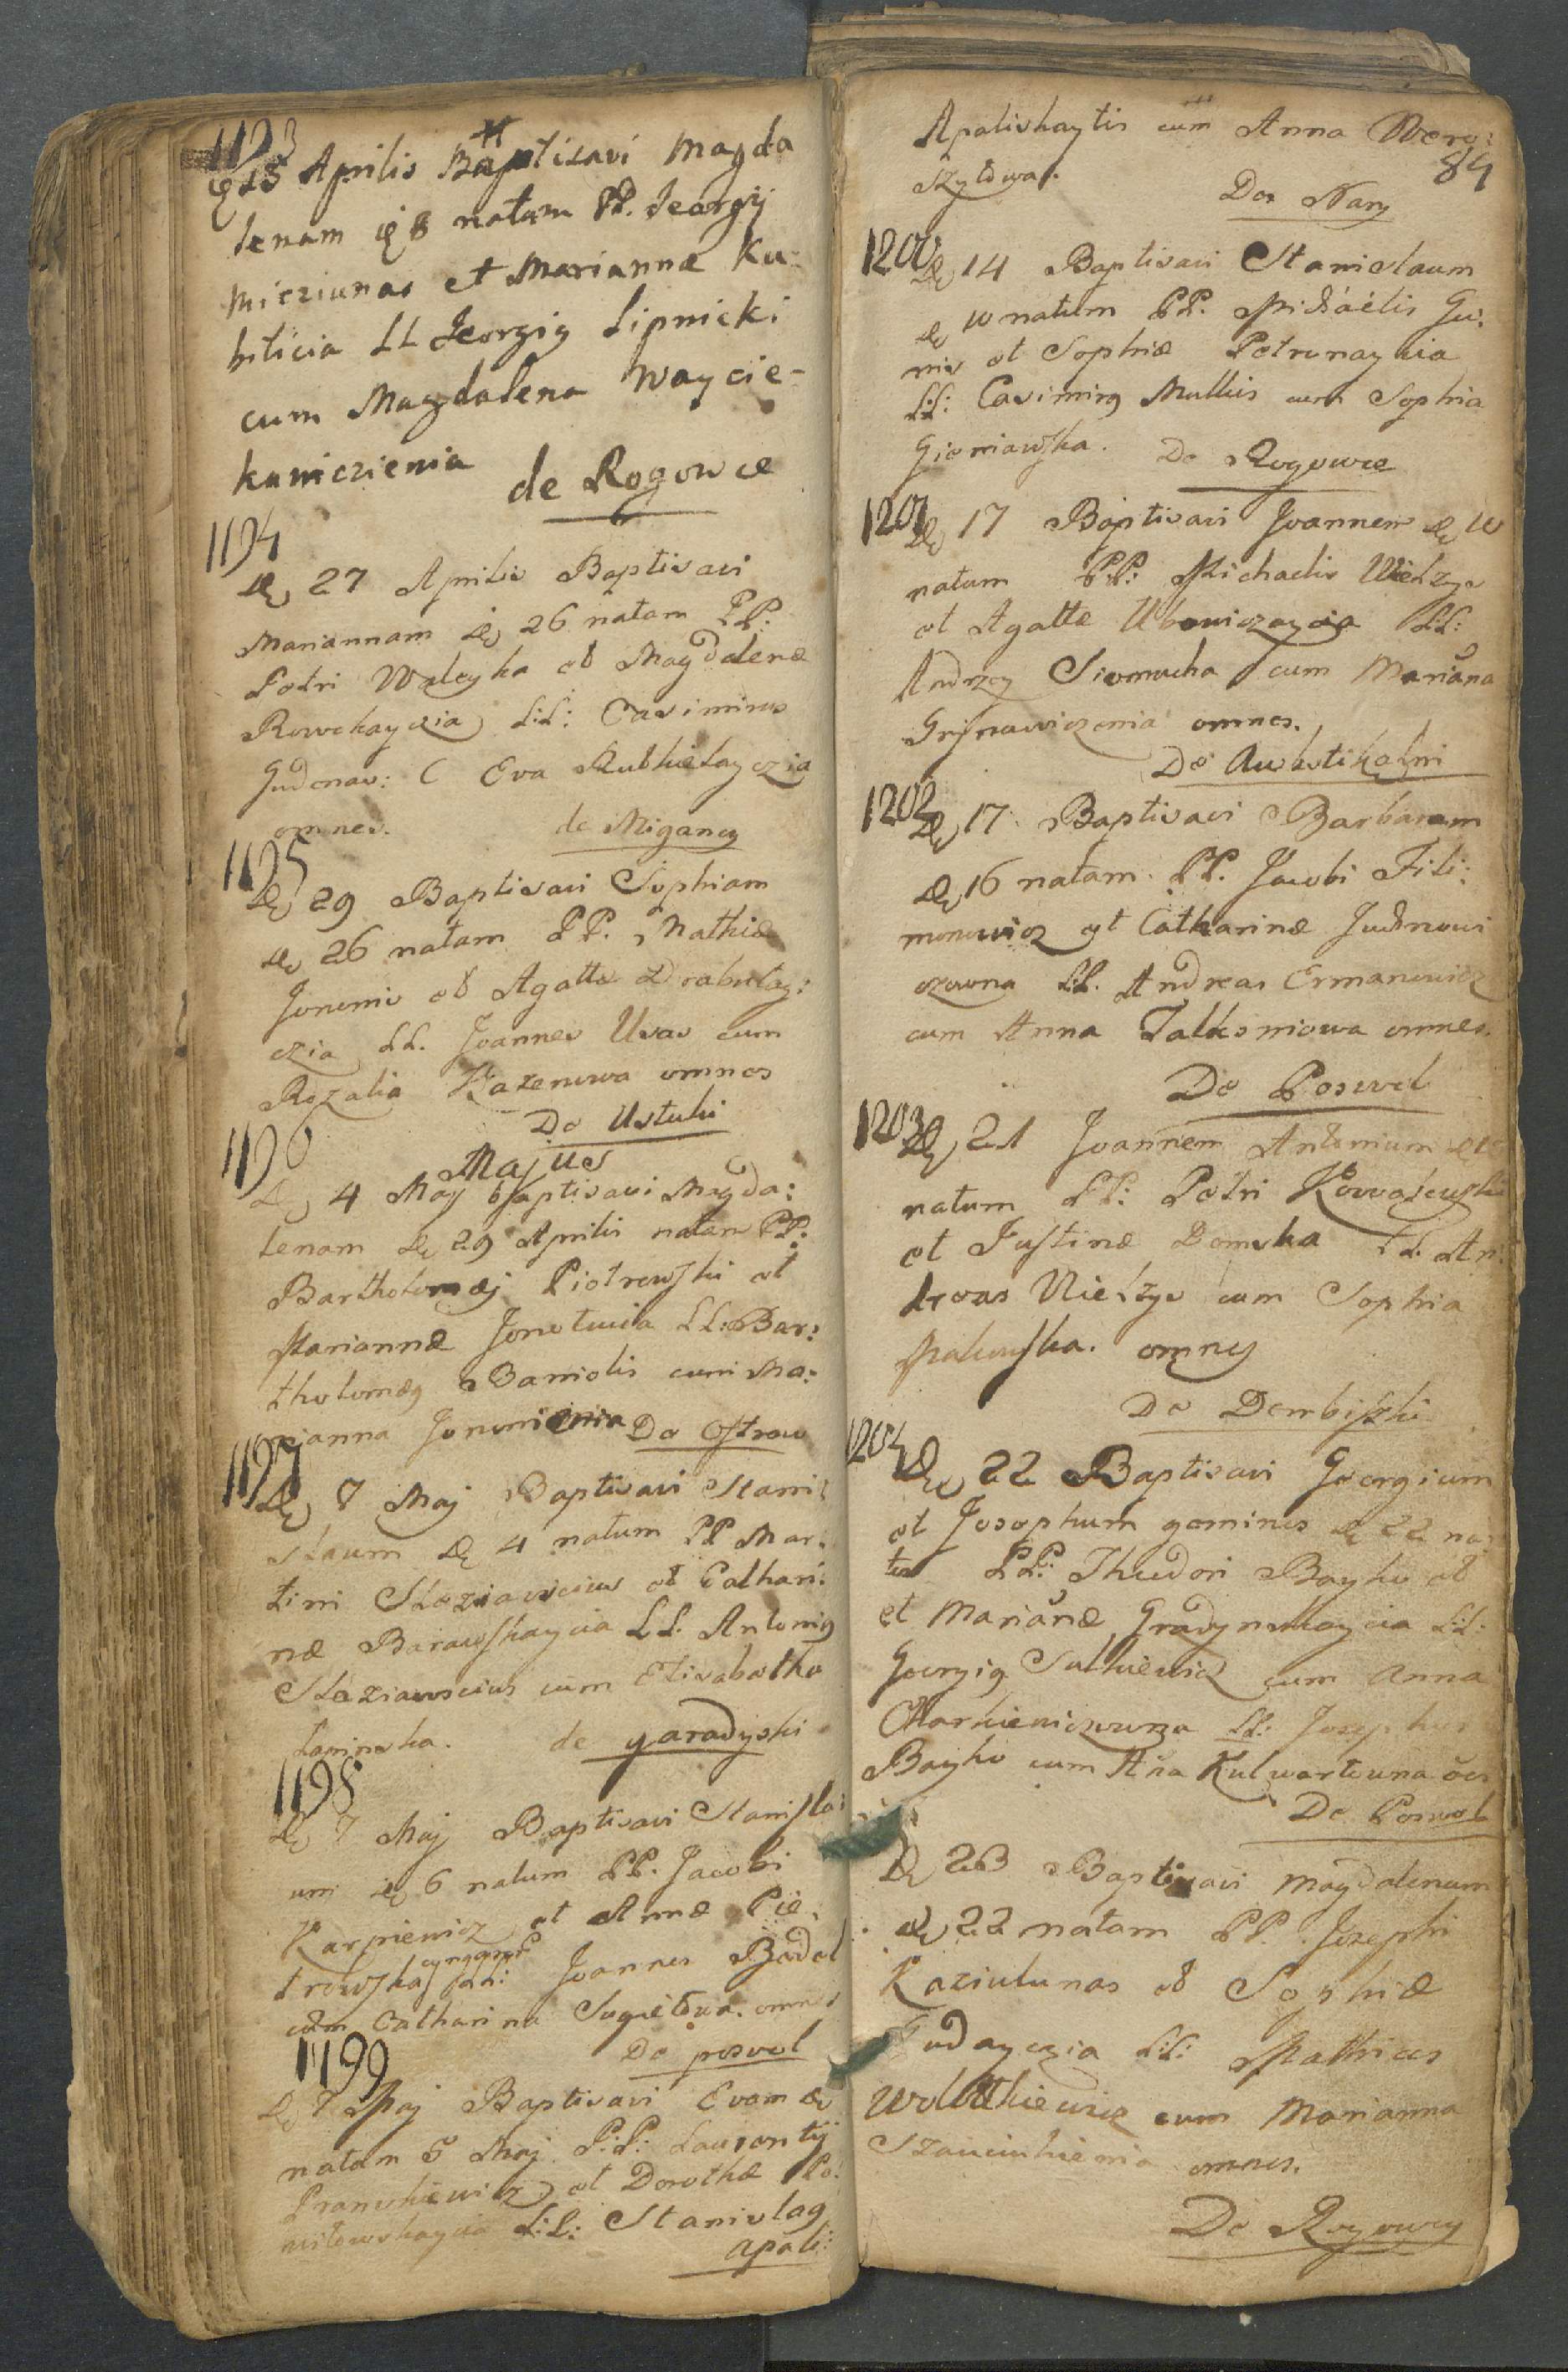 1193
25 Aprilis Baptisavi Magda
lenam 8 natam PP. Jeorgij
Micziunas et Mariannæ Ku-
biticia LL Jeorgig Lipnicki
cum Magdalena Waycie-
kuniczienia de Rogowce
1194
27 Aprilis Baptisavi
Mariannam 26 natam PP:
Petri Waleyka et Magdalenæ
Rowckayczia L:L: Casimirus
Gudenas: C Eva Rutkielayczia
omnes. de Migancy
1195
29 Baptisavi Sophiam
26 natam PP. Mathiæ
Jononis et Agattæ Drabulay:
czia LL. Joannes Usas cum
Rozalia Kazenowa omnes
De Ustuki
1196
Majus
4 Maj Baptisavi Magda:
lenam 29 Aprilis natam PP:
Bartholomæj Piotrowski et
Mariannæ Jonotucia LL: Bar:
tholomæg Daniolis cum Ma:
rianna Jononienia De Ostrow
1197
7 Maj Baptisavi Stani:
slaum 4 natum PP Mar:
tini Slaziawscius et Cathari:
næ Barawskaycia LL. Antonig
Slaziawscius cum Elisabetha
Laninska. de garadyski
1198
7 Maj Baptisavi Stanisla:
um 6 natum PP. Jacobi
Karpiewicz et Annæ Pie.
trowska LL: Joannes Badal
cum Catharina Sugietowa. omnes
De posvol
1199
7 Maj Baptisavi Evam
natam 5 Maj P:P: Laurentij
Pranckiewicz et Dorothæ Po:
witowskaycia L:L: Stanislag
Apali:
Apaliskaytis cum Anna Wero:
84
szylowa.
De Nary
1200
14 Baptisavi Stanislaum
10 natum PP. Michaelis Gu:
nis et Sophiæ Petrunaycia
L:L: Casimirg Mulkis cum Sophia
Gieniawska. De Rogowce
1201
17 Baptisavi Joannem 10
natum P:P: Michaelis Wielzys
et Agattæ Ubowiczaycia L:L:
Andrzey Siemucha cum Mariana
Grynawiczenia omnes.
De Aukstikalni
1202
17 Baptisavi Barbaram
16 natam PP. Jacobi Fili:
monowicz et Catharinæ Judinowi
czowna L:L. Andreas Ermanowicz
cum Anna Talksniowa omnes.
De Poswol
1203
21 Joannem Antonium
natum PP: Petri Kowalewski
et Justinæ Domska LL. An:
dreas Nielzys cum Sophia
Makowska. omnes
De Dembiszki
1204
22 Baptisavi Georgium
et Josephum geminos 22 na
tos PP: Theodori Boyko et
et Marianæ Gradynskaycia L:L:
Georgig Sutkiewicz cum Anna
Markiewiczowna LL: Josephus
Boyko cum Ana Kulwartowna oes
De Poswol
23 Baptisavi Magdalenam
22 natam PP. Josephi
Kaziulunas et Sophiæ
Judayczia L:L: Mathias
Wolotkiewicz cum Marianna
Szauciukienia omnes.
De Rogowcy